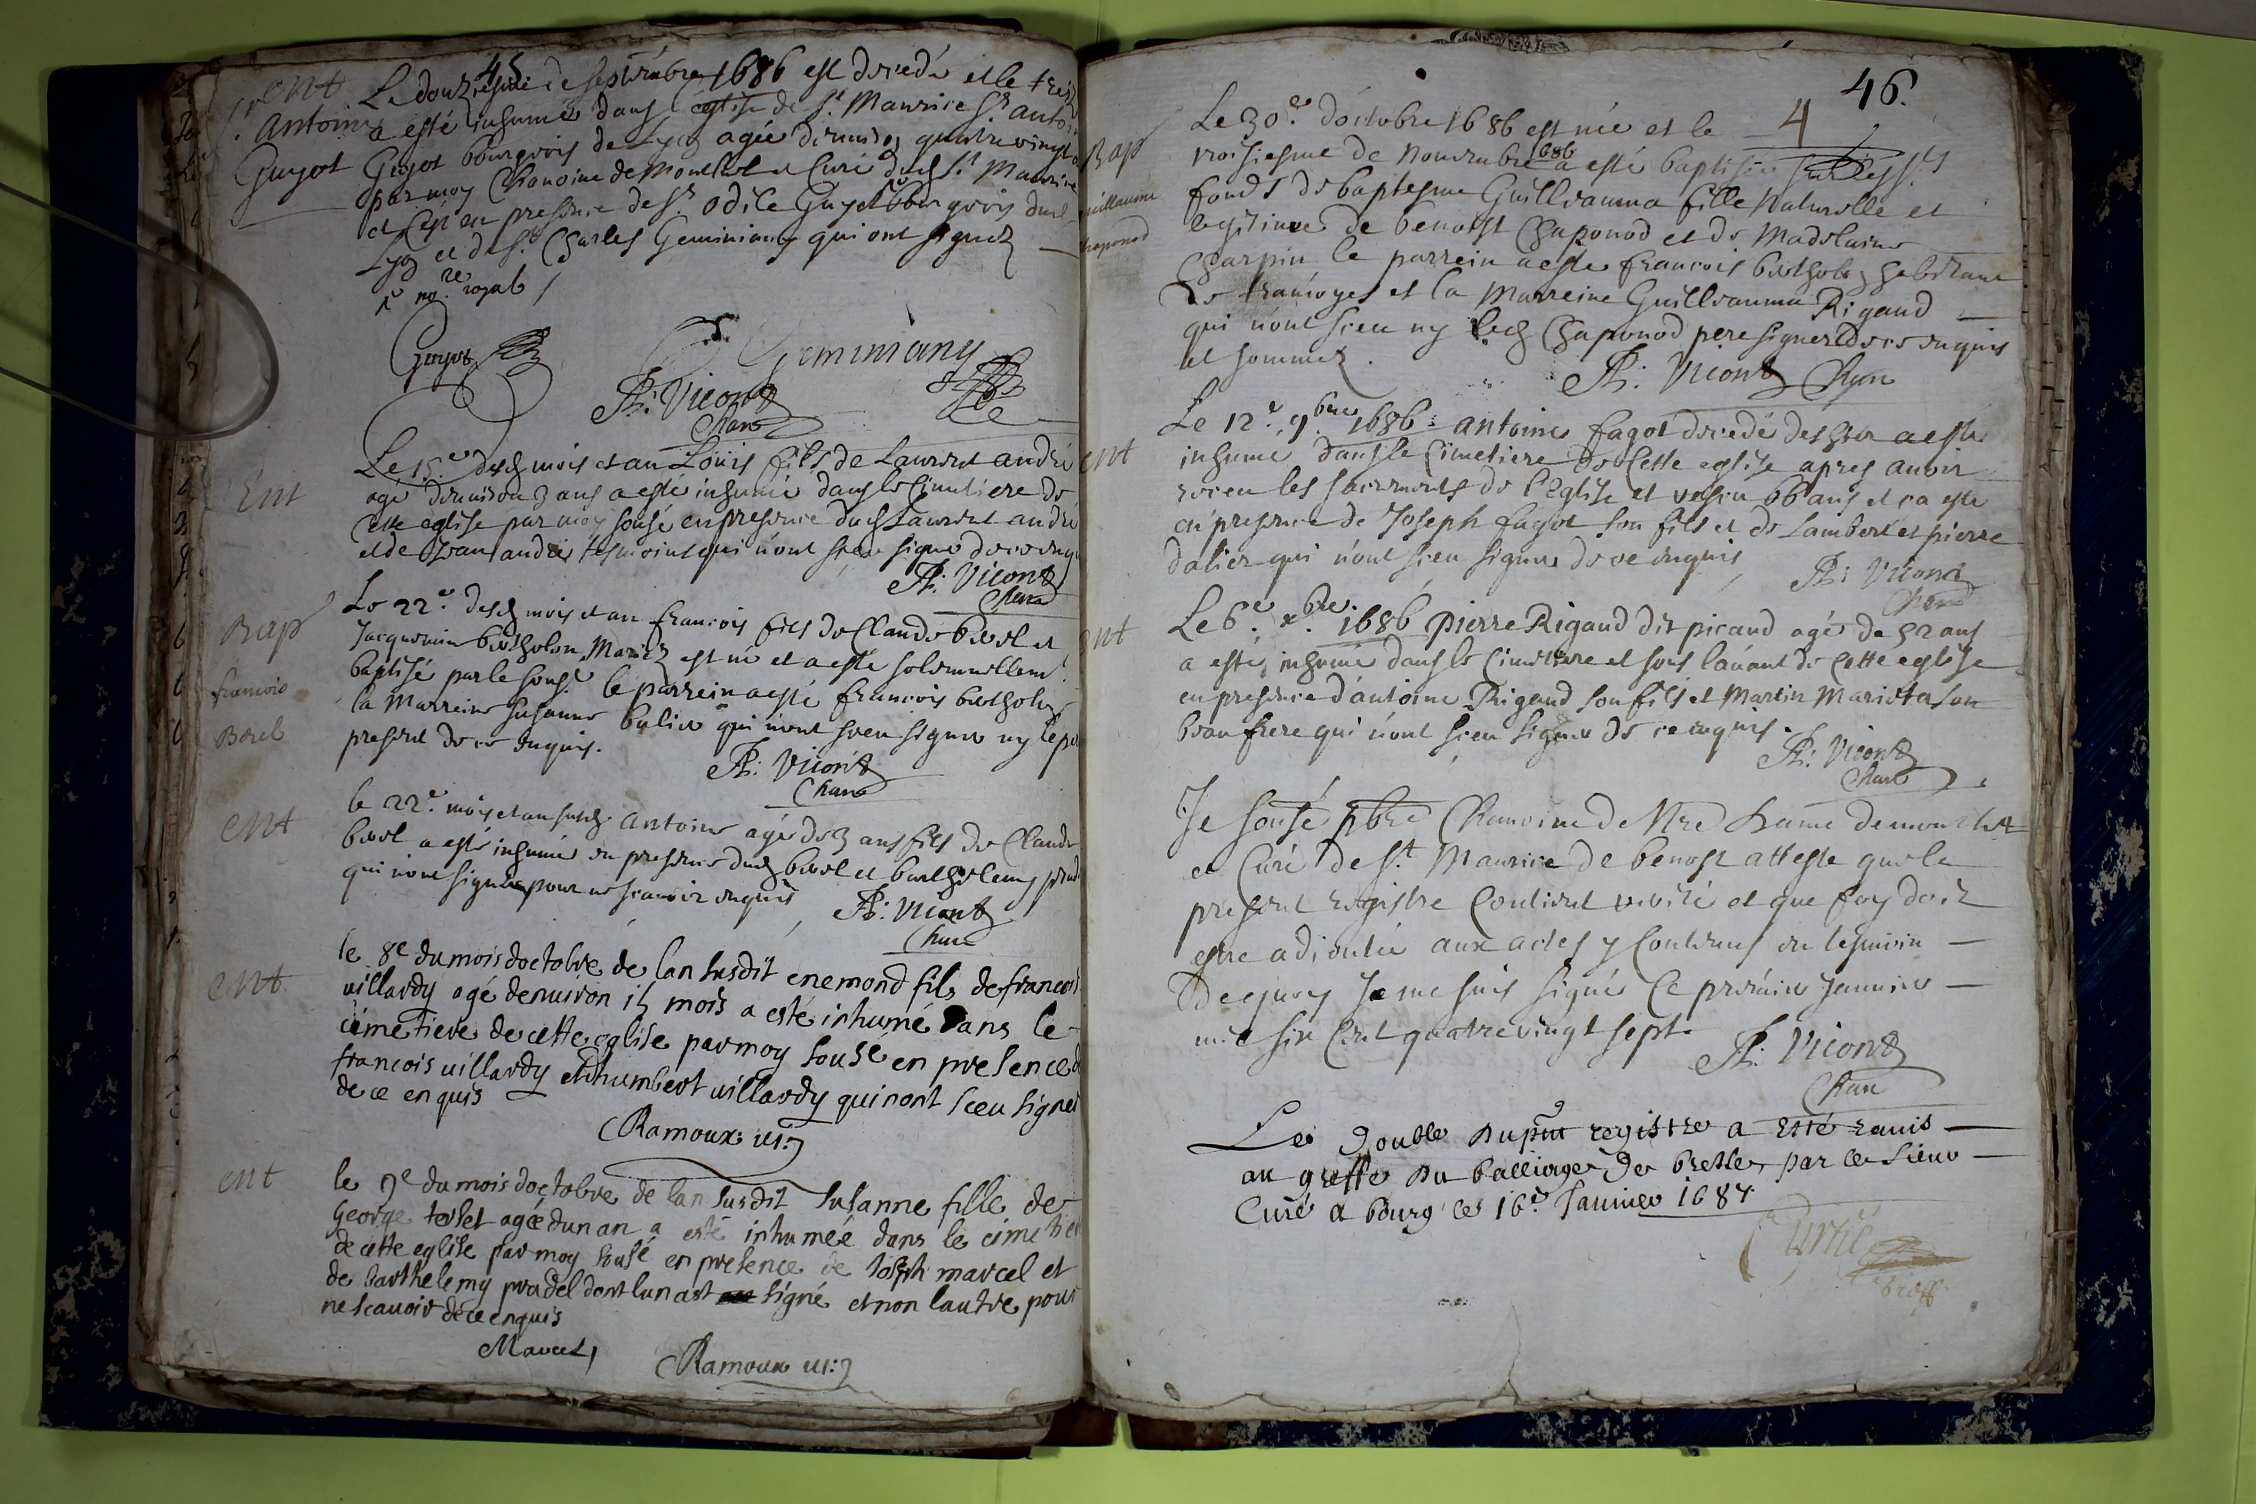 45
ent Le douziesme de septembre 1686 est decedé et le treiz
Sr. Antoine a esté inhumé dans l'eglise de St. Maurice Sr. antoine
Guyot Guyot bourgeois de Lyon agée d'environ quatre vingt
par moy Chanoine de Montluel et Curé dud. St. Maurice
et ce en presence de Sr. odile Guyot bourgeois dud.
Lyon et de Sr. Charles Geminiany qui ont signez
re. royal
Guyot
Geminiany
Ph: Vicont
Chane
Ent Le 15e. desd. mois et an Loüis fils de Laurent andré
agé d'environ 3 ans a esté inhumé dans le Cimetiere de
cette eglise par moy sousé en presence dud. Laurent andré
et de Jean andré tesmoins qui n'ont sceu signer de ce enq
Ph: Vicont
Chane
Bap Le 22e. desd. mois et an francois fils de Claude borel et
Jacquemine bertholon Mariez est né et a esté solemnellem.
francois baptisé par le sousé. le parrein a esté francois bertholon
Borel la Marreine Susanne qui n'ont sceu signer ny le pe
present de ce enquis.
Ph: Vicont
Chane
ent le 22e. mois et an susd. antoine agé de 3 ans fils de Claude
borel a esté inhumé en presence dud. borel et barthelemy prad
qui n'ont signé pour ne scauoir enquis
Ph: Vicont
Chane
ent le 8e du mois doctobre de lan susdit enemond fils de francois
uillardy agé denuiron 15 mois a esté inhumé Dans le
cimetiere de cette eglise par moy sousé en presence d
francois uillardy et humbert uillardy qui nont sceu signer
de ce enquis
Ramoux ui:
ent le 9e du mois doctobre de lan susdit susanne fille de
George terlet agée dun an a esté inhumée dans le cimetier
de cette eglise par moy sousé en presence de Joseph marcel et
de barthelemy pradel dont lun a signé et non lautre pour
ne scauoir de ce enquis
Marcel
Ramoux ui:
46.
4
Bap Le 30e. d'octobre 1686 est née et le
troisiesme de Nouembre 1686 a esté baptisée sur les Sts
Guillaume fonds de baptesme Guilleauma fille Naturelle et
chaponod legitime de benoist Chaponod et de Madelaine
Charpin le parrein a esté francois bertholon habitant
de tramoyes et la Marreine Guilleauma Rigaud
qui n'ont sceu ny led. Chaponod pere signer de ce enquis
et sommez.
Ph: Vicont Chane
ent Le 12e. 9bre 1686 antoine fagot decedé des hier a esté
inhumé dans le Cimetiere de Cette eglise apres auoir
receu les sacrements de l'Eglise et vescu 66 ans et ca esté
en presence de Joseph fagot son fils et de Lambert et pierre
dalier qui n'ont sceu signer de ce enquis
Ph: Vicont
Chane
ent Le 6e. xbre. 1686 Pierre Rigaud dit picaud agé de 52 ans
a esté inhumé dans le Cimetiere et sous lauant de Cette eglise
en presence d'antoine Rigaud son fils et Martin Marietta son
beau frere qui n'ont sceu signer de ce enquis.
Ph: Vicont
Chane
Je sousé pbre Chanoine de Nre Dame de montluel
et Curé de St. Maurice de benost atteste que le
present registre Contient verité et que foy doit
estre adioutée aux actes y Contenus en tesmoin
Dequoy Je me suis signé Ce premier Januier
mil six Cent quatre vingt sept.
Ph: Vicont
Chane
Le double du pnt registre a esté remis
au greffe du bailliage de bresse par le sieur
Curé a bourg le 16e. Januier 1687.
greff.